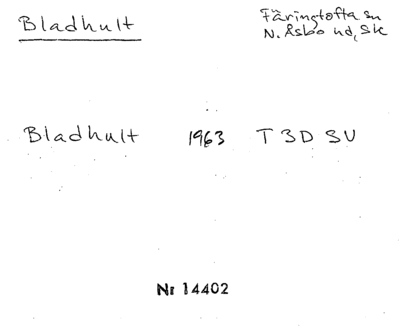 Bladhult
Färingtofta sn
N. Åsbo hd, Sk
Bladhult 1963 T 3D SV
Nr 14402